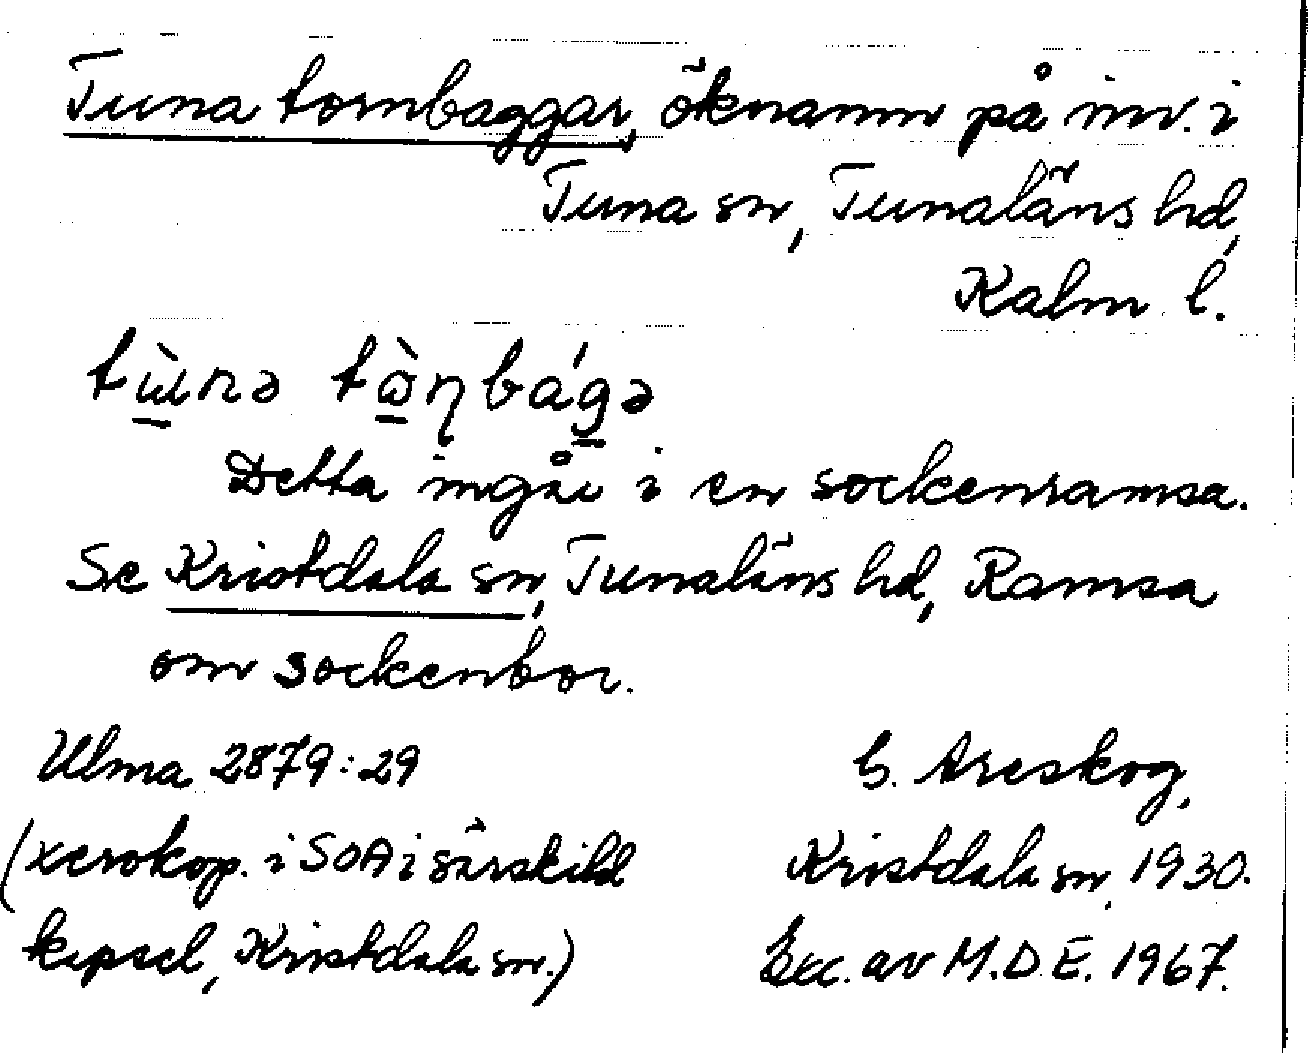 Tuna tornbaggar, öknamn på inv. i
Tuna sn, Tunaläns hd,
Kalm l.
tùnə tò̱ɳbágə
Detta ingår i en sockenramsa.
Se Kristdala sn, Tunaläns hd, Ramsa
om sockenbor.
Ulma 2879:29
G. Areskog,
(xerokop. i SOA i särskild
Kristdala sn, 1930.
kapsel, Kristdala sn.)
Exc. av M.D.E. 1967.